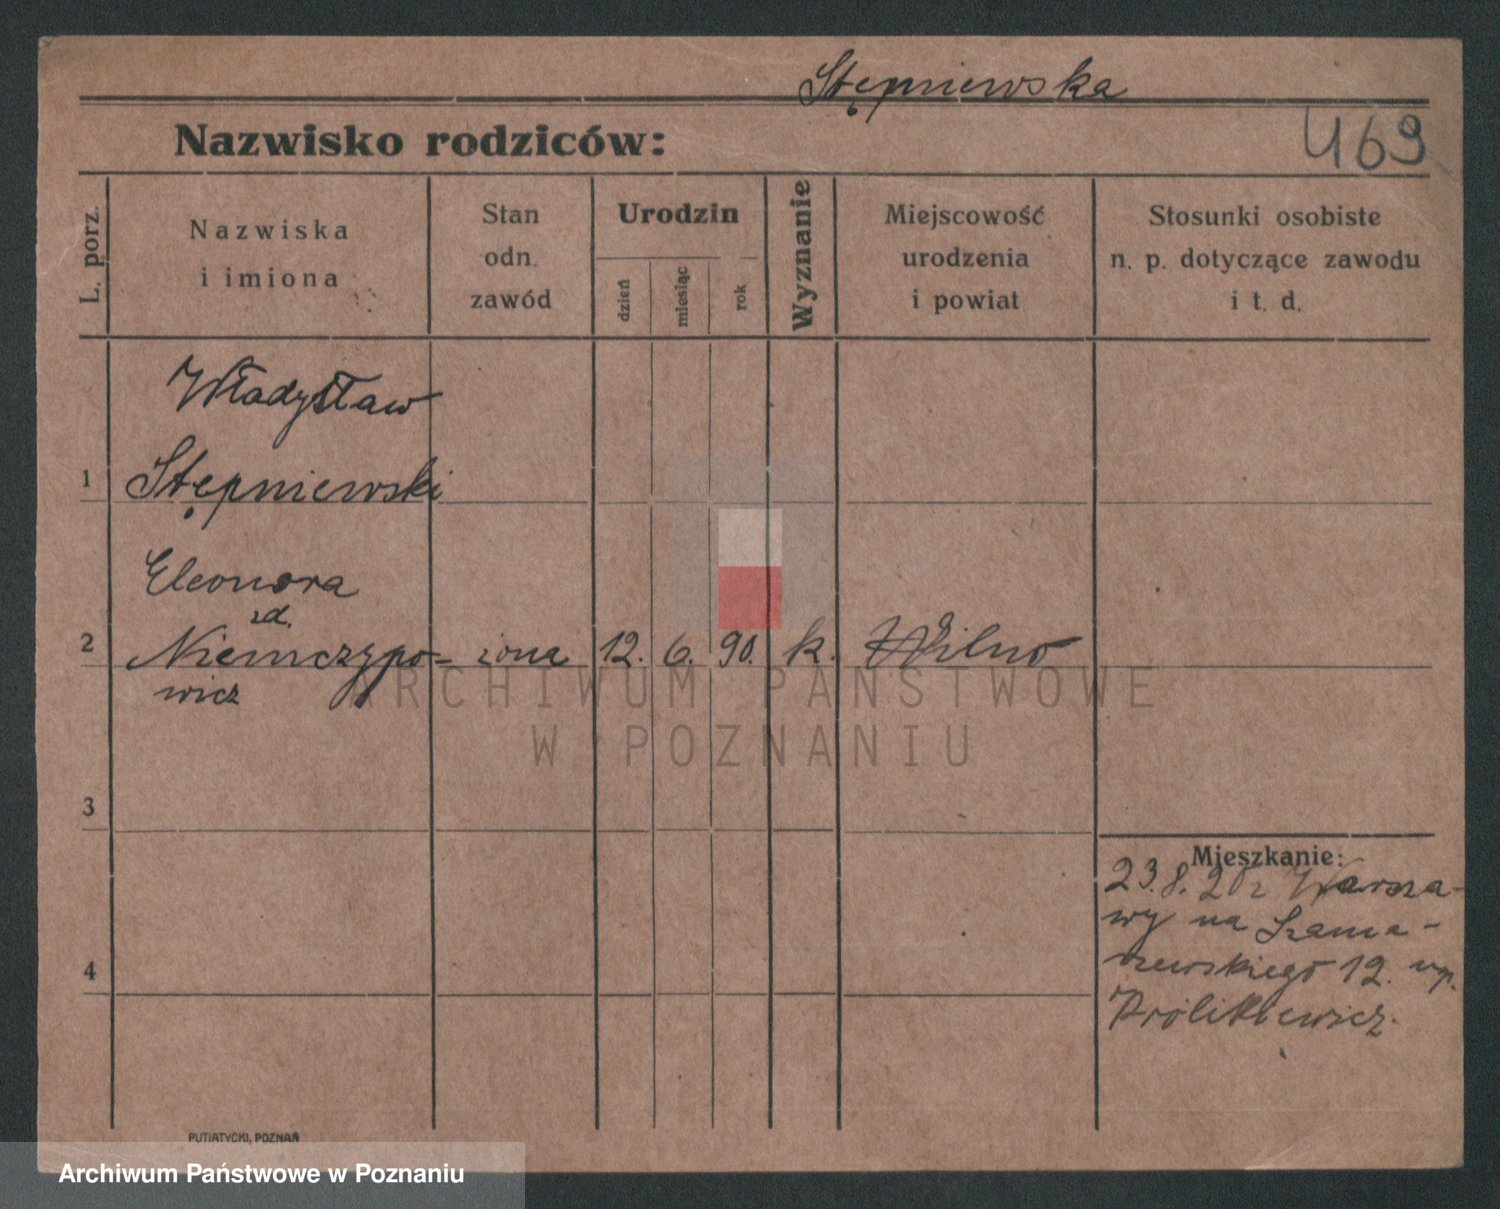 Stępniewska
Nazwisko rodziców:
469
L. porz.
Nazwiska
i imiona
Stan
odn.
zawód
Urodzin
dzień
miesiąc
rok
Wyznanie
Miejscowość
urodzenia
i powiat
Stosunki osobiste
n. p. dotyczące zawodu
i t. d.
Władysław
1 Stępniewski
Eleonora
zd.
2 Niemczypo- żona 12. 6. 90. k. Wilno
wicz
ARCHIWUM PAŃSTWOWE
W POZNANIU
3
Mieszkanie:
23.8.20 z Warsza-
wy na Szama-
rzewskiego 12. wp.
4
Królikiewicz.
PUTIATYCKI, POZNAŃ
Archiwum Państwowe w Poznaniu